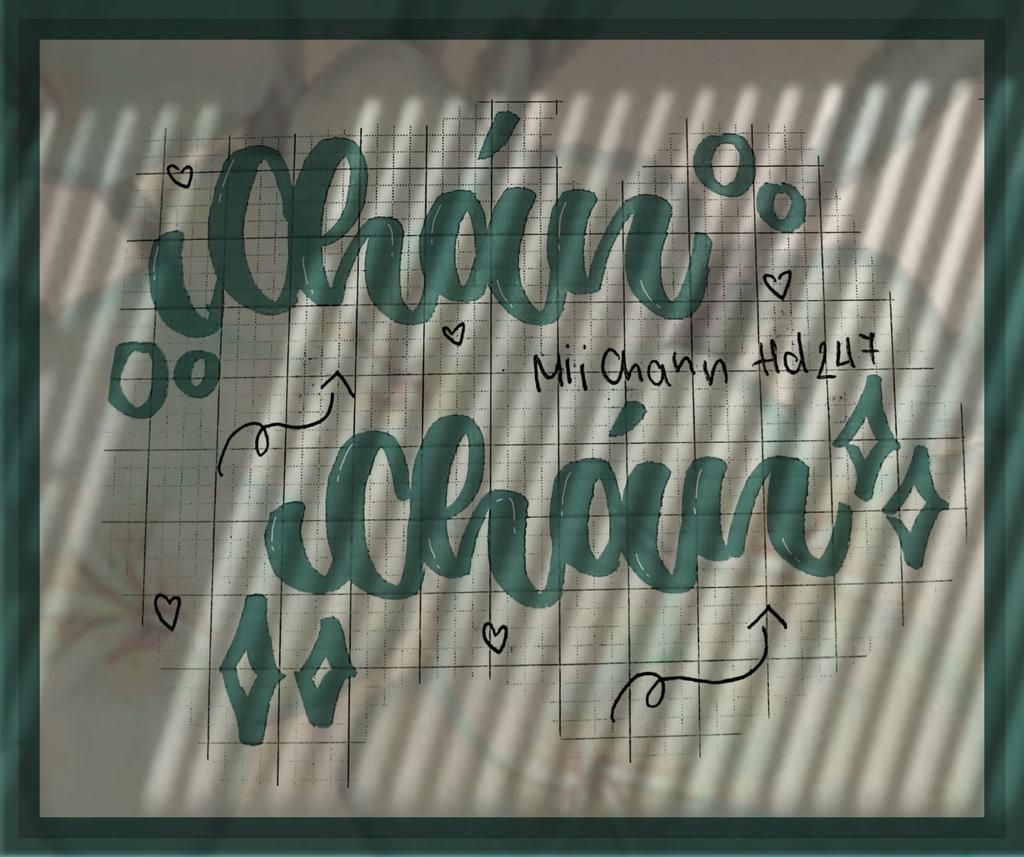 Chán
Mii Chann Hd247
Chán